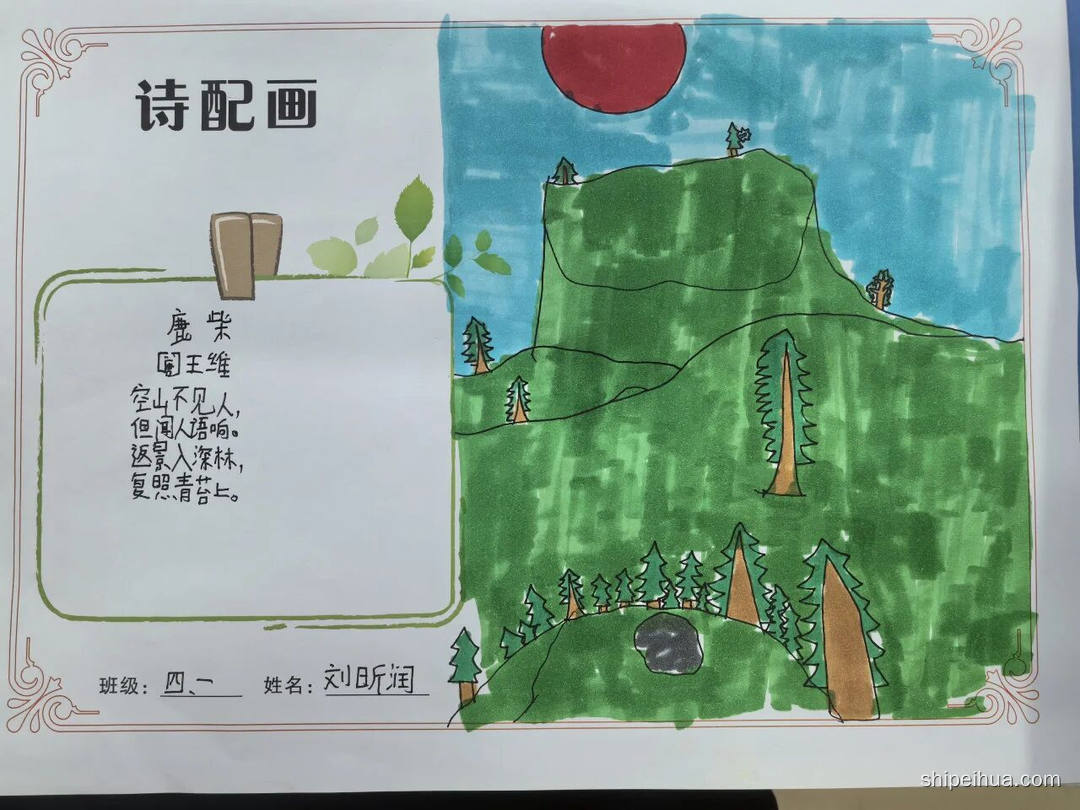 诗配画
鹿柴
唐王维
空山不见人，
但闻人语响。
返景入深林，
复照青苔上。
班级：四、一 姓名：刘昕润
shipeihua.com